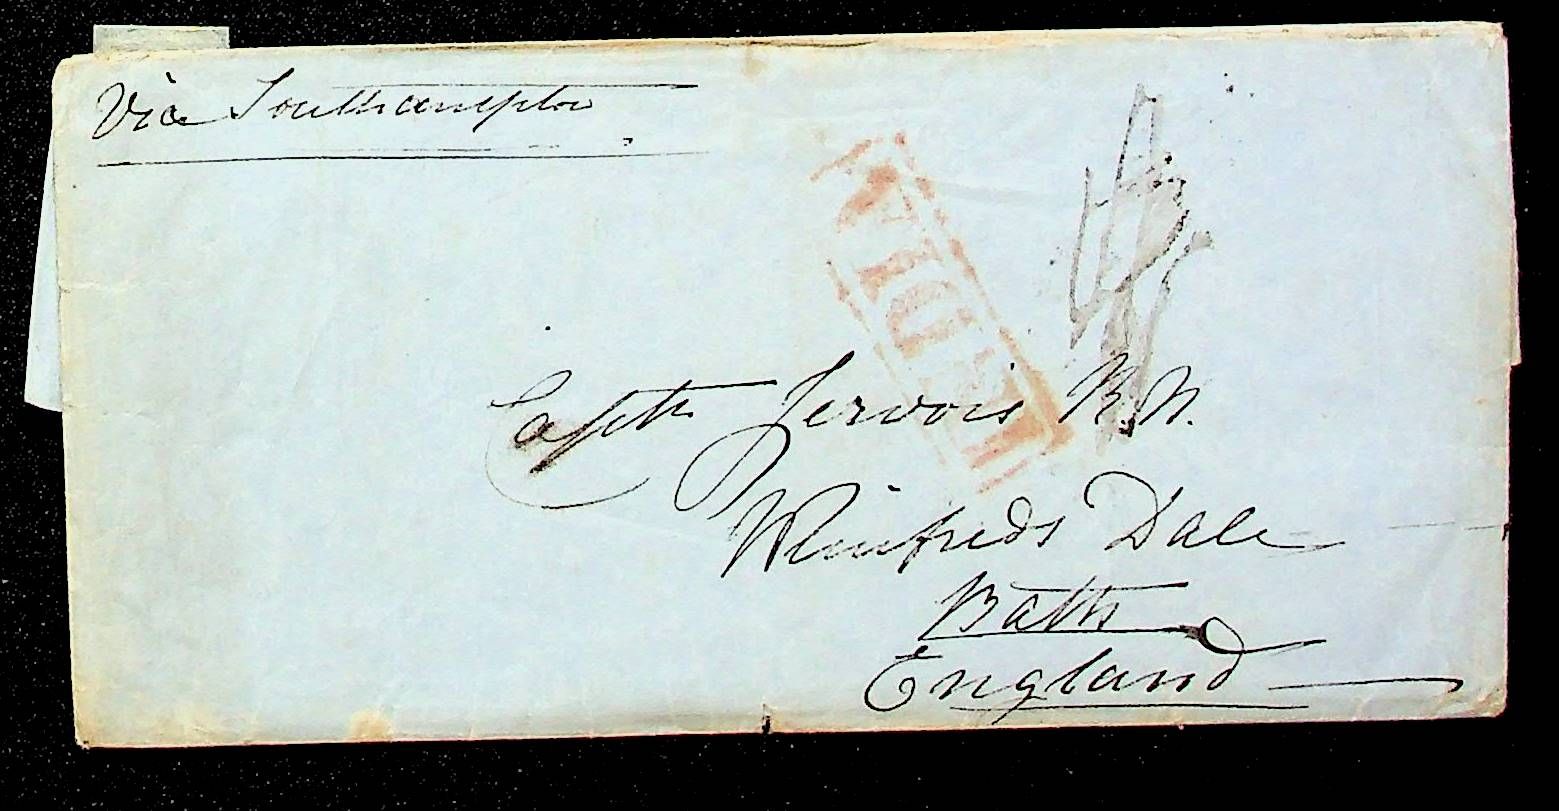 Via Southampton
INDIA
Captn Jervois R.N.
Winifreds Dale
Bath
England